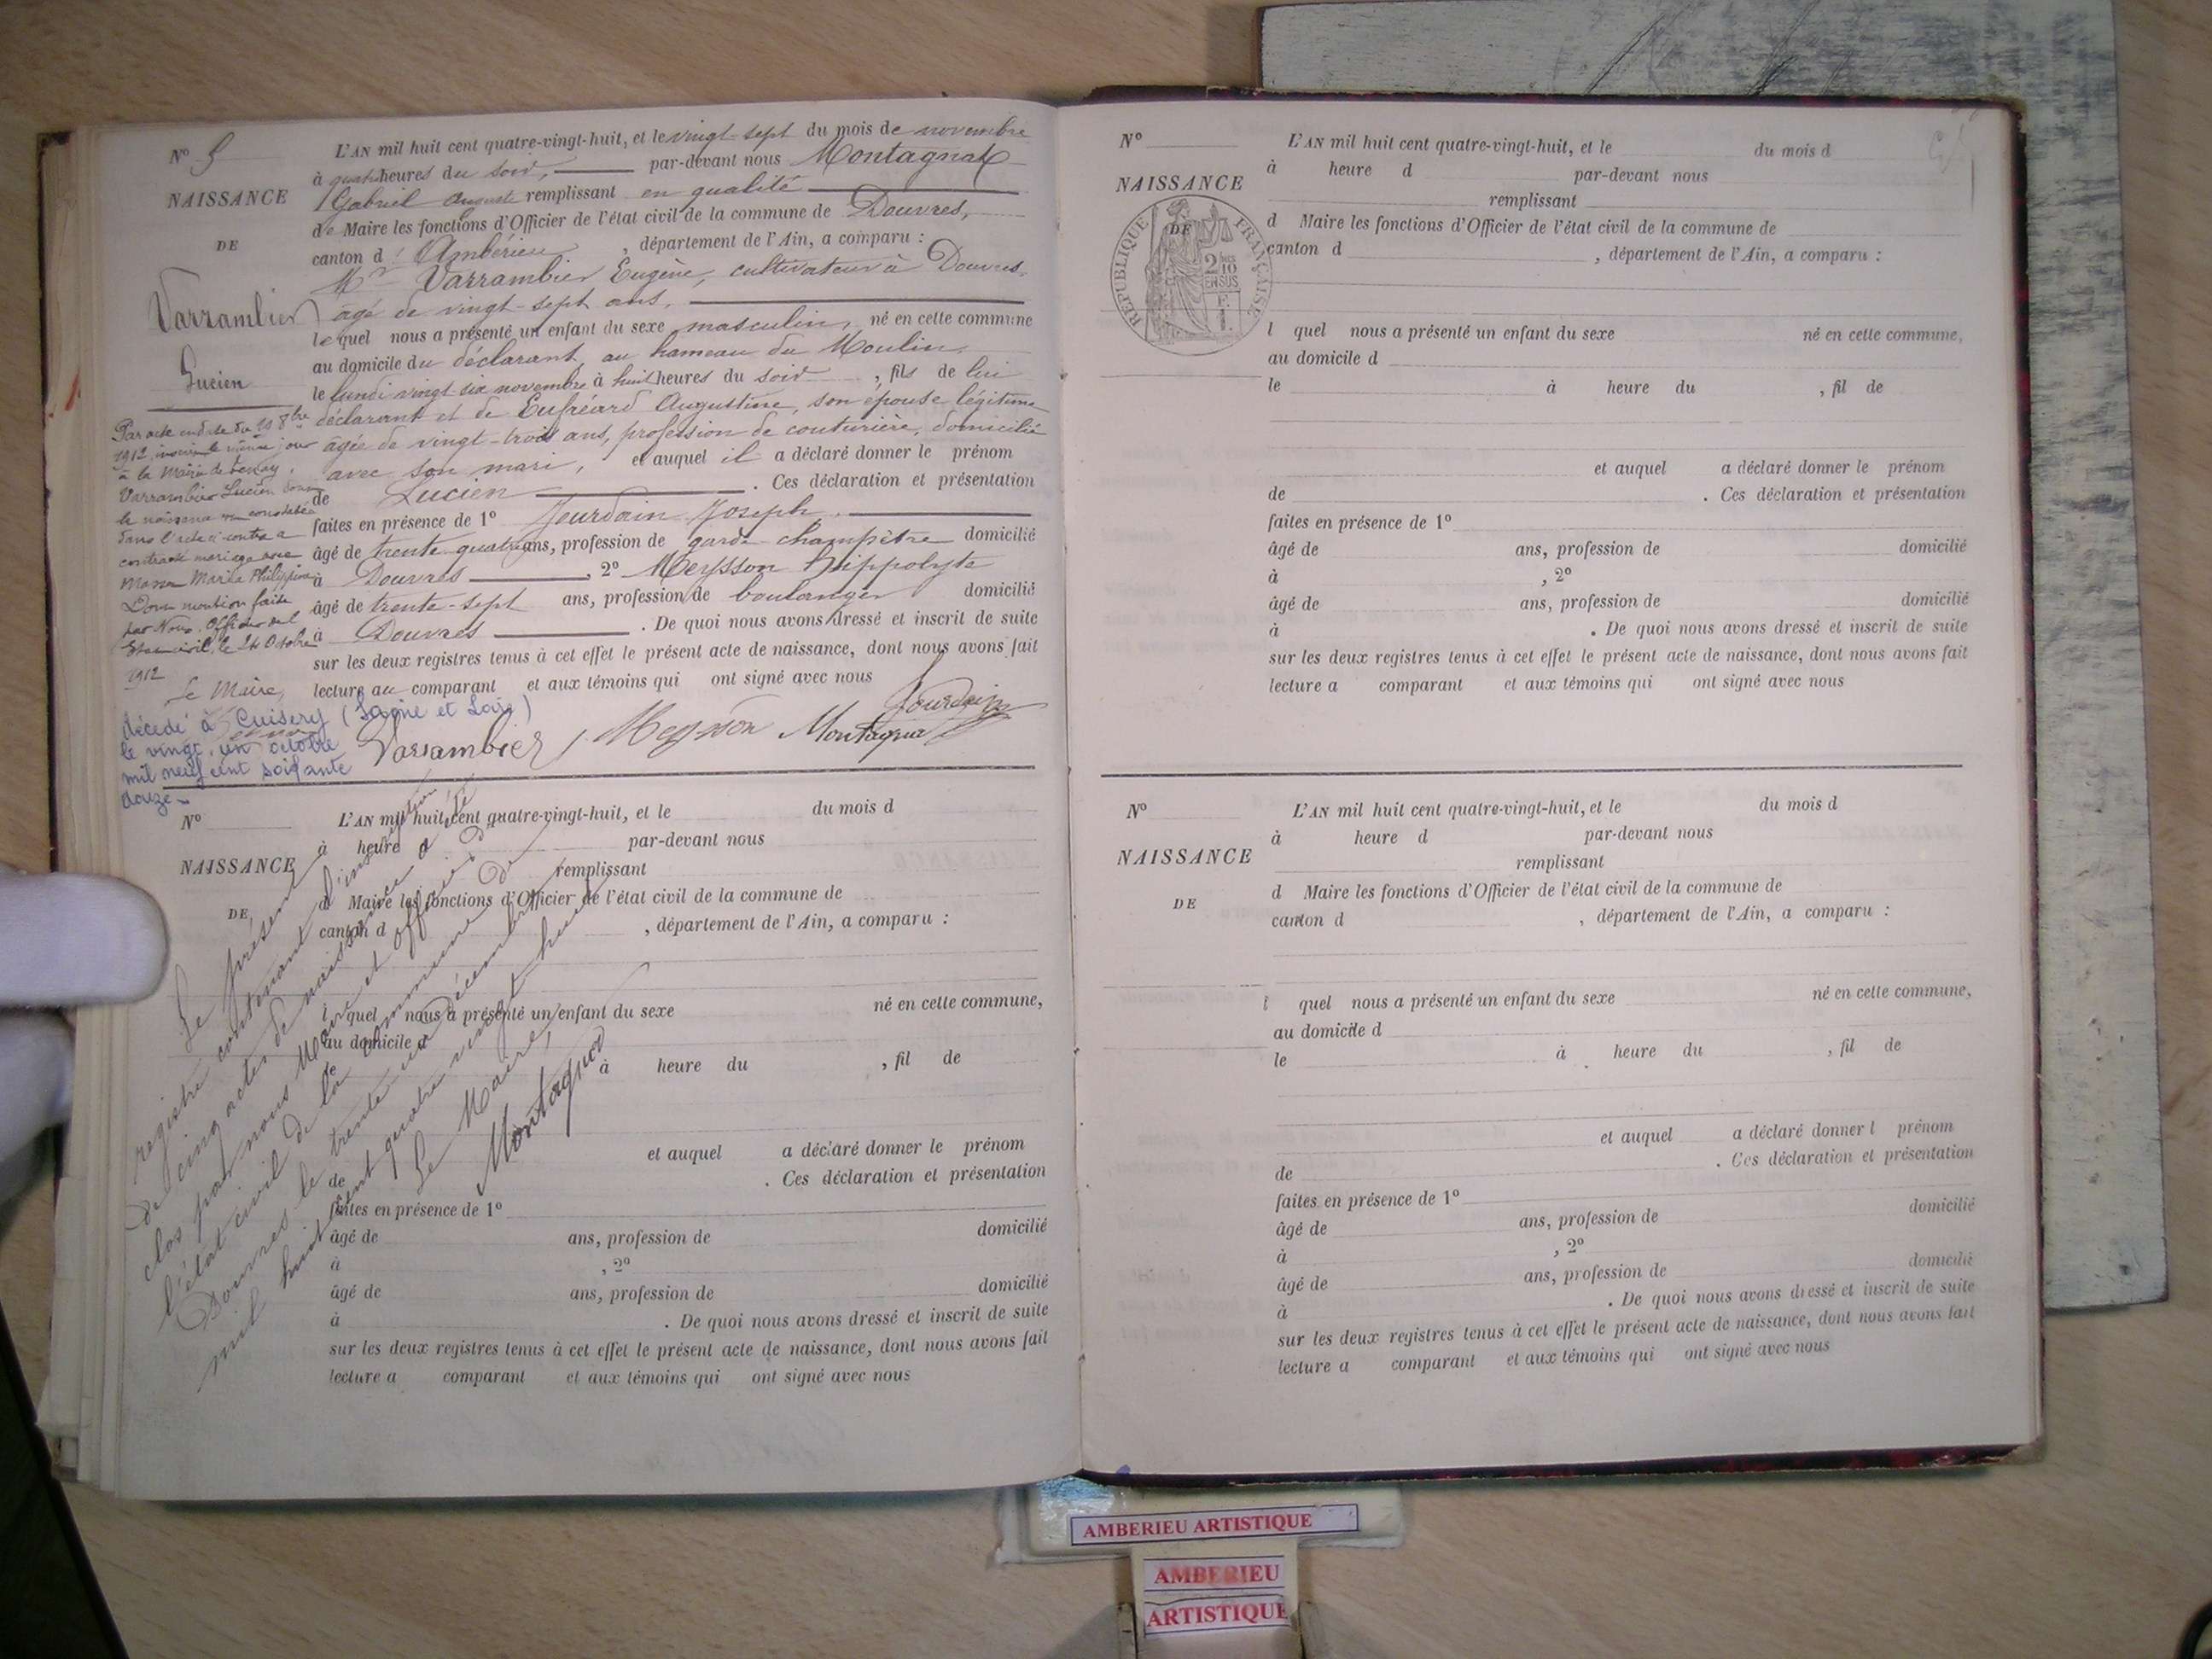 N° 5
NAISSANCE
DE
Varrambier
Lucien
L'AN mil huit cent quatre-vingt-huit, et le vingt-sept du mois de novembre
à quatre heures du soir, par-devant nous Montagnat
Gabriel Auguste remplissant en qualité
de Maire les fonctions d'Officier de l'état civil de la commune de Douvres,
canton d'Ambérieu, département de l'Ain, a comparu :
Mr Varrambier Eugène, cultivateur à Douvres
âgé de vingt-sept ans,
lequel nous a présenté un enfant du sexe masculin, né en cette commune
au domicile du déclarant, au hameau du Moulin,
le lundi vingt-six novembre à huit heures du soir, fils de lui
déclarant et de Eufréard Augustine, son épouse légitime
âgée de vingt-trois ans, profession de couturière, domicilié
avec son mari, et auquel il a déclaré donner le prénom
de Lucien. Ces déclaration et présentation
faites en présence de 1° Jourdain Joseph,
âgé de trente quatre ans, profession de garde champêtre domicilié
à Douvres, 2° Meysson Hippolyte
âgé de trente-sept ans, profession de boulanger domicilié
à Douvres. De quoi nous avons dressé et inscrit de suite
sur les deux registres tenus à cet effet le présent acte de naissance, dont nous avons fait
lecture au comparant et aux témoins qui ont signé avec nous
Jourdain
Varrambier Meysson Montagnat
Par acte en date du 19 8bre
1912, inscrit le même jour
à la Mairie de Tenay,
Varrambier Lucien dont
la naissance est constatée
dans l'acte ci-contre a
contracté mariage avec
Marie Philippine
Dont mention faite
par Nous, Officier de l'
Etat civil, le 24 Octobre
1912
Le Maire,
décédé à Cuisery (Saône et Loire)
le vingt un octobre
mil neuf cent soixante
douze
N°
NAISSANCE
DE
L'AN mil huit cent quatre-vingt-huit, et le du mois d
à heure d par-devant nous
remplissant
d Maire les fonctions d'Officier de l'état civil de la commune de
canton d , département de l'Ain, a comparu :
l quel nous a présenté un enfant du sexe né en cette commune,
au domicile d
le à heure du , fil de
et auquel a déclaré donner le prénom
de . Ces déclaration et présentation
faites en présence de 1°
âgé de ans, profession de domicilié
à , 2°
âgé de ans, profession de domicilié
à . De quoi nous avons dressé et inscrit de suite
sur les deux registres tenus à cet effet le présent acte de naissance, dont nous avons fait
lecture a comparant et aux témoins qui ont signé avec nous
Le présent
registre contenant l'inscription
de cinq actes de naissance a été
clos par nous Maire et officier de
l'état civil de la commune de
Douvres le trente un décembre
mil huit cent quatre vingt huit
Le Maire,
Montagnat
N°
NAISSANCE
DE
RÉPUBLIQUE FRANÇAISE
2/10
EN SUS
L'AN mil huit cent quatre-vingt-huit, et le du mois d
à heure d par-devant nous
remplissant
d Maire les fonctions d'Officier de l'état civil de la commune de
canton d , département de l'Ain, a comparu :
l quel nous a présenté un enfant du sexe né en cette commune,
au domicile d
le à heure du , fil de
et auquel a déclaré donner le prénom
de . Ces déclaration et présentation
faites en présence de 1°
âgé de ans, profession de domicilié
à , 2°
âgé de ans, profession de domicilié
à . De quoi nous avons dressé et inscrit de suite
sur les deux registres tenus à cet effet le présent acte de naissance, dont nous avons fait
lecture a comparant et aux témoins qui ont signé avec nous
N°
NAISSANCE
DE
L'AN mil huit cent quatre-vingt-huit, et le du mois d
à heure d par-devant nous
remplissant
d Maire les fonctions d'Officier de l'état civil de la commune de
canton d , département de l'Ain, a comparu :
l quel nous a présenté un enfant du sexe né en cette commune,
au domicile d
le à heure du , fil de
et auquel a déclaré donner l prénom
de . Ces déclaration et présentation
faites en présence de 1°
âgé de ans, profession de domicilié
à , 2°
âgé de ans, profession de domicilié
à . De quoi nous avons dressé et inscrit de suite
sur les deux registres tenus à cet effet le présent acte de naissance, dont nous avons fait
lecture a comparant et aux témoins qui ont signé avec nous
AMBERIEU ARTISTIQUE
AMBERIEU
ARTISTIQUE